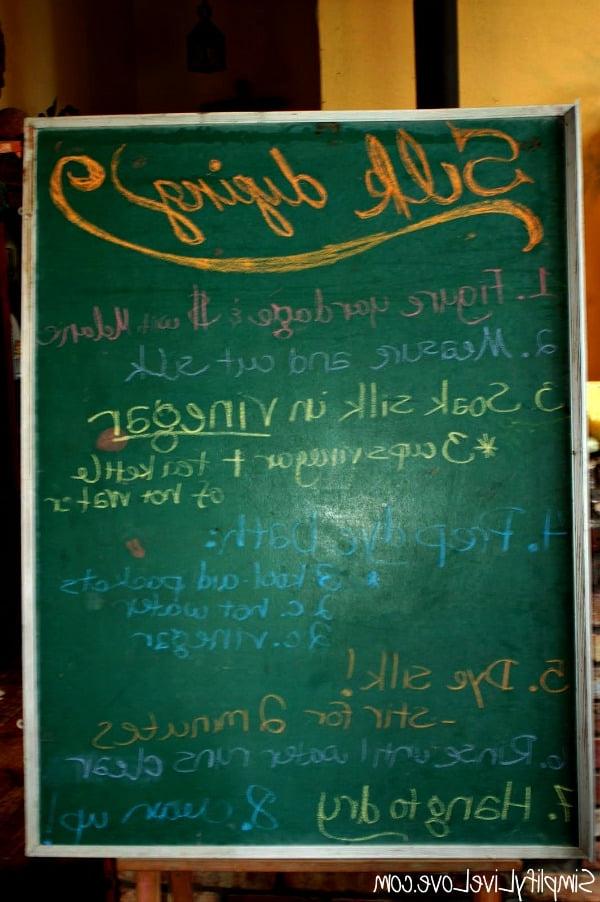 Silk dying
1. Figure yardage & $ with Melanie
2. Measure and cut silk
3 Soak silk in vinegar
*3 cups vinegar + tea kettle
of hot water
4. Prep dye bath:
* 3 kool-aid packets
2 c. hot water
2 c. vinegar
5. Dye silk!
- stir for 2 minutes
6. Rinse until water runs clear
7. Hang to dry
8. clean up!
SimplifyLiveLove.com